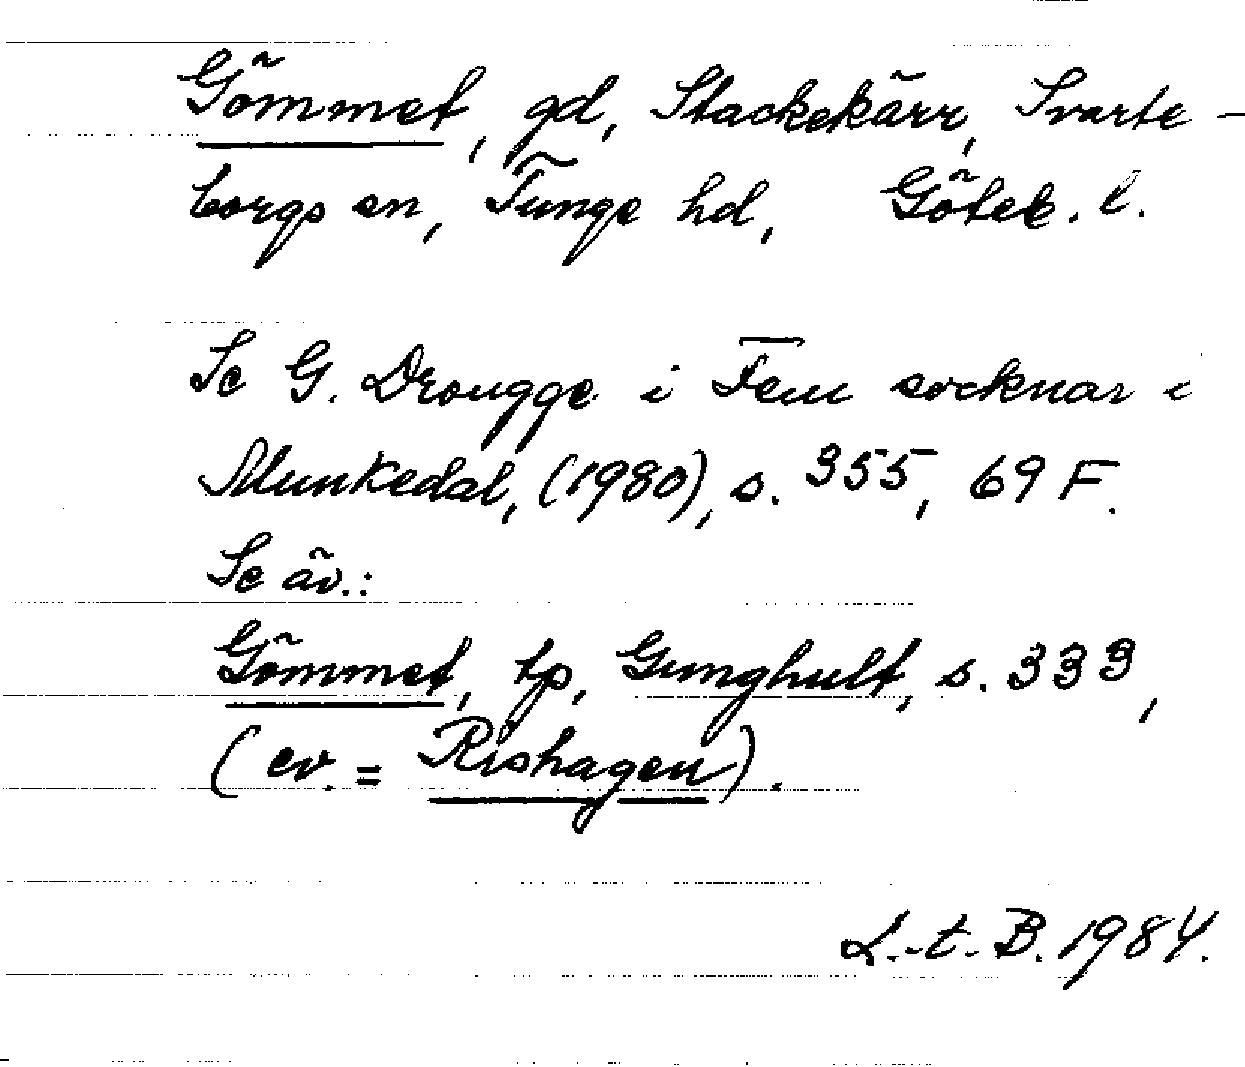 Gömmet, gd, Stackekärr, Svarte-
borgs sn, Tunge hd, Göteb. l.
Se G. Drougge i Fem socknar i
Munkedal, (1980), s. 355, 69 F.
Se äv.:
Gömmet, tp, Gunghult, s. 333,
(ev. = Rishagen).
L.-t. B. 1984.